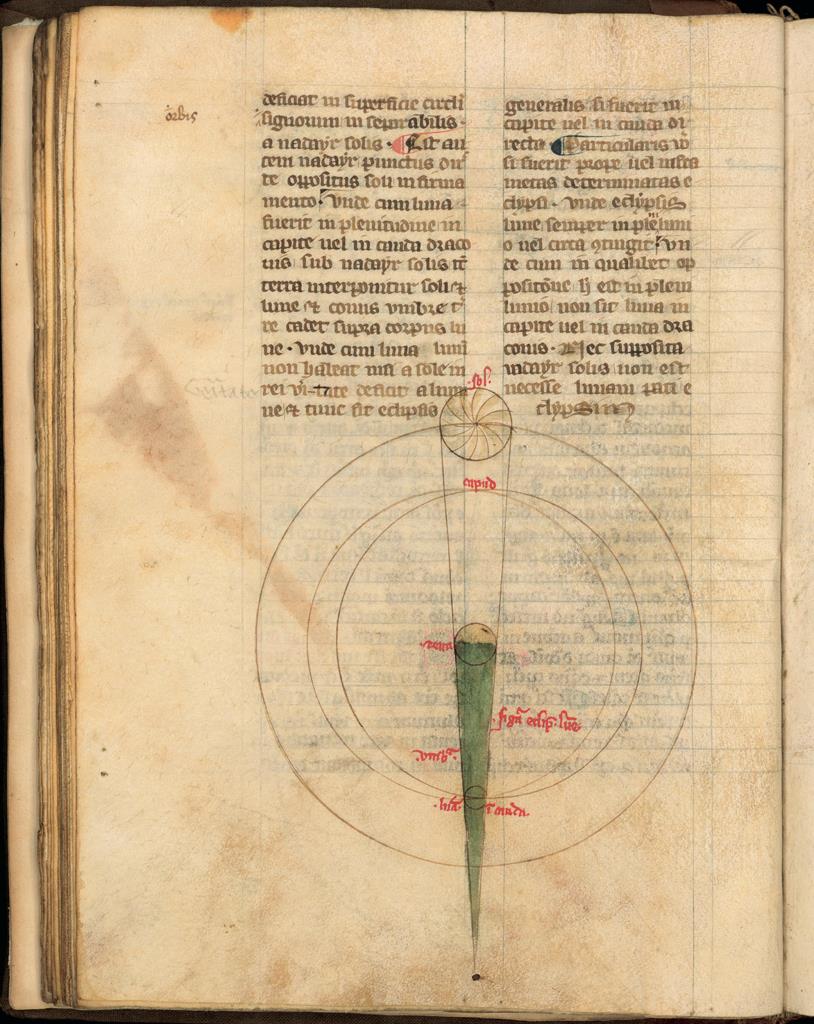 orbis
deficiat in superficie circli
signorum in seperabilis
a nadayr solis. Est au
tem nadayr punctus dir
te oppositus soli in firma
mento. vnde cum luna
fuerit in plenitudine in
capite uel in cauda draco
nis sub nadayr solis tc
terra interponitur soli et
lune et conus vmbre t
re cadet supra corpus lu
ne. vnde cum luna lumen
non habeat nisi a sole in
rei vitate deficit a lumi
ne et tunc fit eclipsis
generalis si fuerit in
capite uel in cauda di
recte Particularis vo
si fuerit prope uel infra
metas determinatas e
clypsi. vnde eclypsis
lune semper in pleniluni
o uel circa 9tingit. vn
de cum in qualibet op
positione h est in pleni
lunio non sit luna in
capite uel in cauda dra
conis. Nec supposita
nadayr solis non est
necesse lunam pati e
clypsim
sol.
caput
terra
figa eclip. lune
vmba.
luna. i cauda.